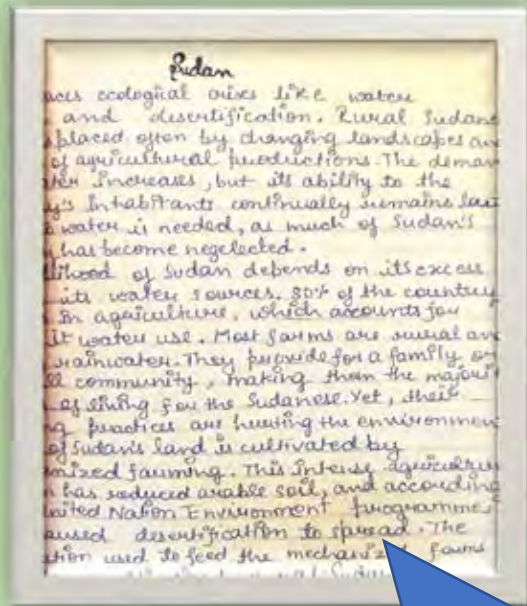 Sudan
aces ecological crises like water
and desertification. Rural Sudane
splaced often by changing landscapes an
of agricultural productions. The deman
ter increases, but its ability to the
y's inhabitants continually remains
water is needed, as much of Sudan's
has become negelected.
lihood of Sudan depends on its excess
its water sources. 80% of the country
in agriculture, which accounts for
it water use. Most farms are rural an
rainwater. They provide for a family or
ll community, making them the majori
of living for the Sudanese. Yet, their
ng practices are hurting the environmen
of Sudan's land is cultivated by
mized farming. This intense agricultur
n has reduced arable soil, and according
nited Nation Environment programme,
aused desertification to spread. The
tion used to feed the mechanized farms